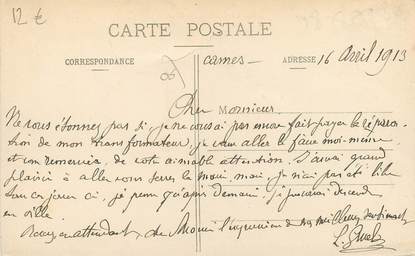 12 €
CARTE POSTALE
CORRESPONDANCE
ADRESSE
Cannes - 16 Avril 1913
Cher Monsieur
Ne vous étonnez pas si je ne vous ai pas encore fait payer la répara-
tion de mon transformateur, je veux aller le faire moi-même
et vous remercier de votre aimable attention. J'aurai grand
plaisir à aller vous serrer la main, mais je n'ai pas été libre
tous ces jours ci, je pense qu'après demain, je pourrai descendre
en ville.
en attendant, cher Monsieur l'expression de mes meilleurs sentiments